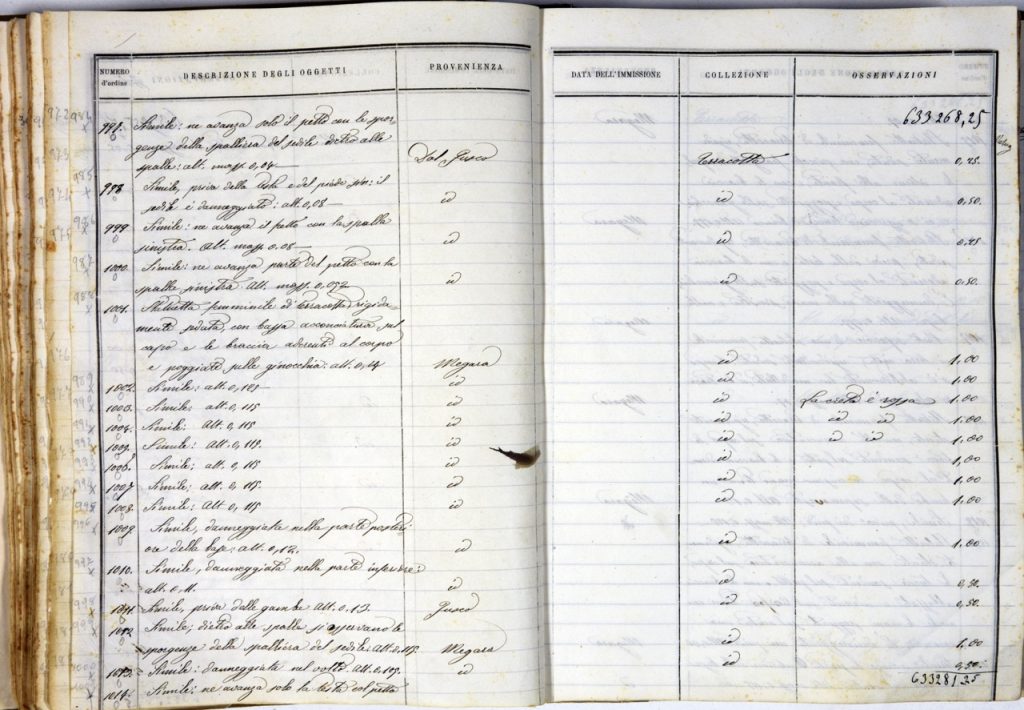 NUMERO d'ordine
DESCRIZIONE DEGLI OGGETTI
PROVENIENZA
997. Simile: ne avanza solo il petto con le spor-
genze della spalliera del sedile dietro alle
spalle: alt. mass. 0,04 — Dal Fusco
998 Simile, priva della testa e del piede sin: il
sedile è danneggiato: alt. 0,08 — id
999 Simile: ne avanza il petto con la spalla
sinistra. Alt. mass. 0.08 — id
1000. Simile: ne avanza parte del petto con la
spalla sinistra. Alt. mass. 0,052 id
1001. Statuetta femminile di terracotta rigida-
mente seduta, con bassa acconciatura sul
capo e le braccia aderenti al corpo
e poggiate sulle ginocchia: alt. 0,14 Megara
1002. Simile: alt. 0,125 — id
1003. Simile: alt. 0,115 id
1004. Simile: Alt. 0,115 id
1005. Simile: alt. 0,115. id
1006. Simile: alt. 0,115 id
1007 Simile: Alt. 0,115. id
1008. Simile: Alt. 0,115 id
1009. Simile, danneggiata nella parte posteri-
ore della base: alt. 0,12. id
1010. Simile, danneggiata nella parte inferiore:
alt. 0,11. id
1011. Simile, priva delle gambe Alt. 0,13. Fusco
1012. Simile; dietro alle spalle si osservano le
sporgenze della spalliera del sedile: Alt. 0,115. Megara
1013. Simile: danneggiata nel volto. Alt. 0,105. id
1014. Simile: ne avanza solo la testa col petto
DATA DELL'IMMISSIONE
COLLEZIONE
OSSERVAZIONI
633268,25
Terracotta 0,25.
id 0,50.
id 0,25
id 0,50.
id 1,00
id 1,00
id La creta è rossa 1,00
id id id 1,00
id id id 1,00
id 1,00
id 1,00
id 1,00
id 1,00
id 0,50.
id 0,50.
id 1,00
id 0,50.
633281,25